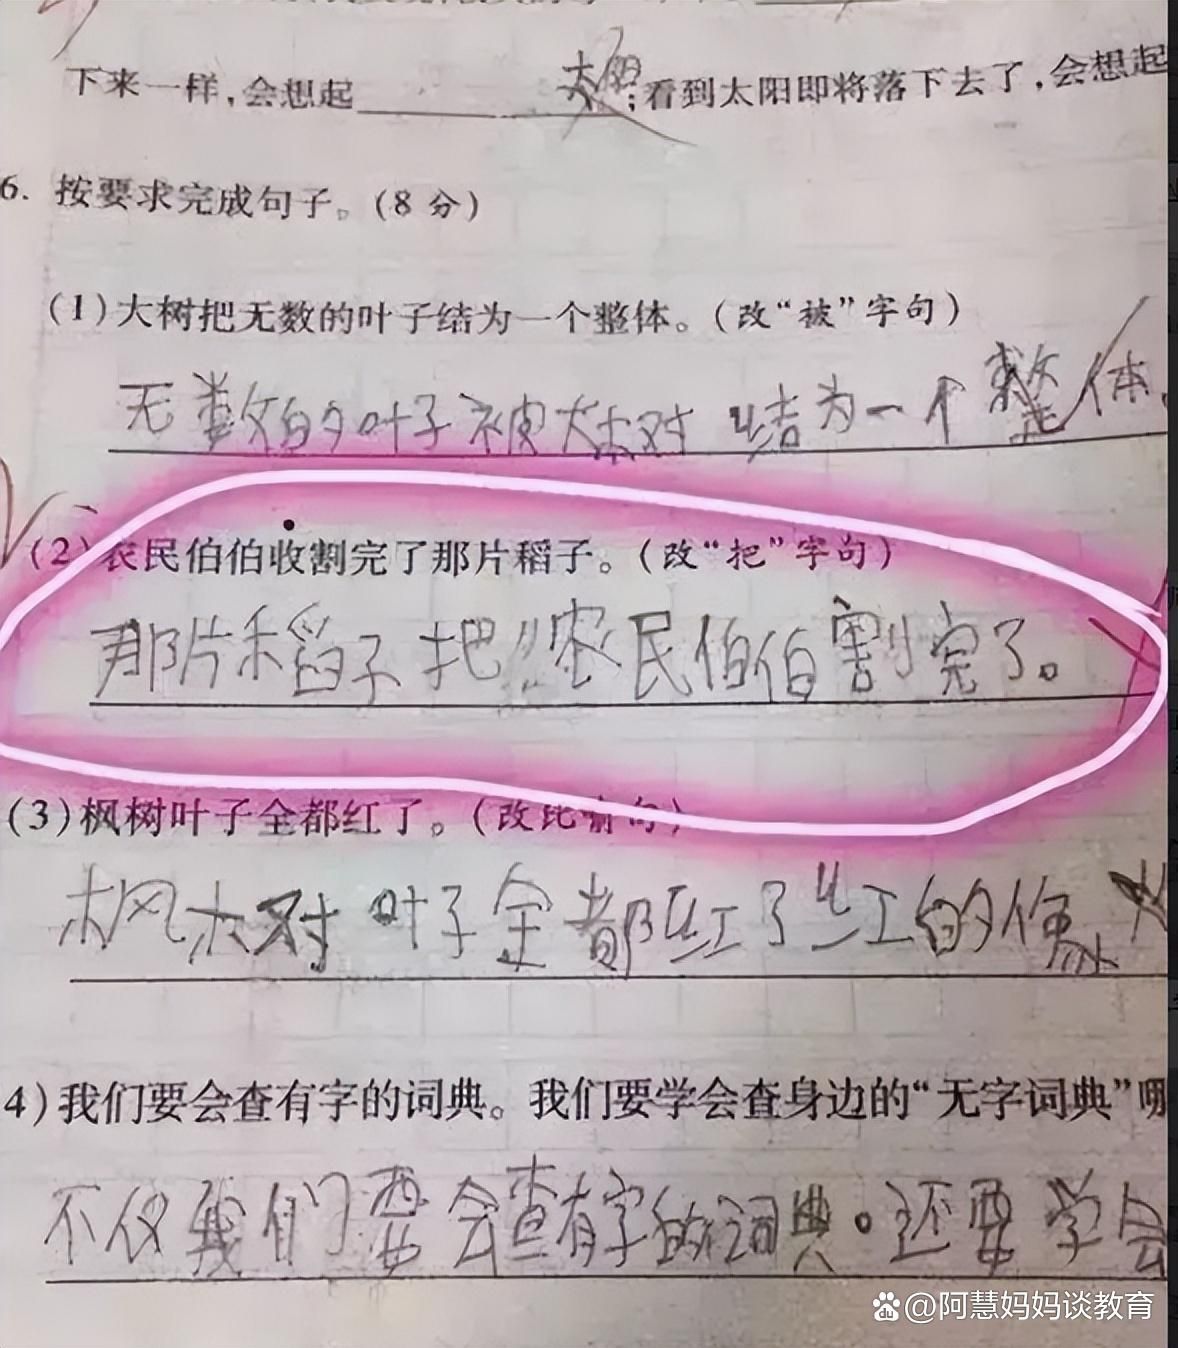 下来一样,会想起 太阳;看到太阳即将落下去了,会想起
6. 按要求完成句子。(8分)
(1)大树把无数的叶子结为一个整体。(改“被”字句)
无数的叶子被大树结为一个整体
(2)农民伯伯收割完了那片稻子。(改“把”字句)
那片稻子把农民伯伯割完了。
(3)枫树叶子全都红了。(改比喻句)
枫树叶子全都红了红的像火
4)我们要会查有字的词典。我们要学会查身边的“无字词典”
不仅我们要会查有字的词典。还要学会
du @阿慧妈妈谈教育